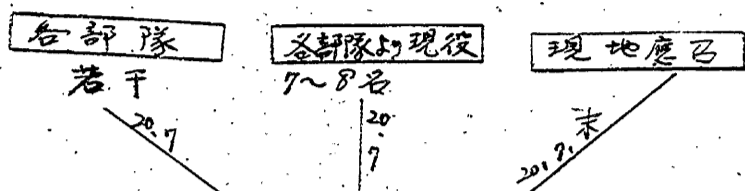 各部隊
若干
20.7
各部隊より現役
7~8名
20.7
現地應召
20.7.末